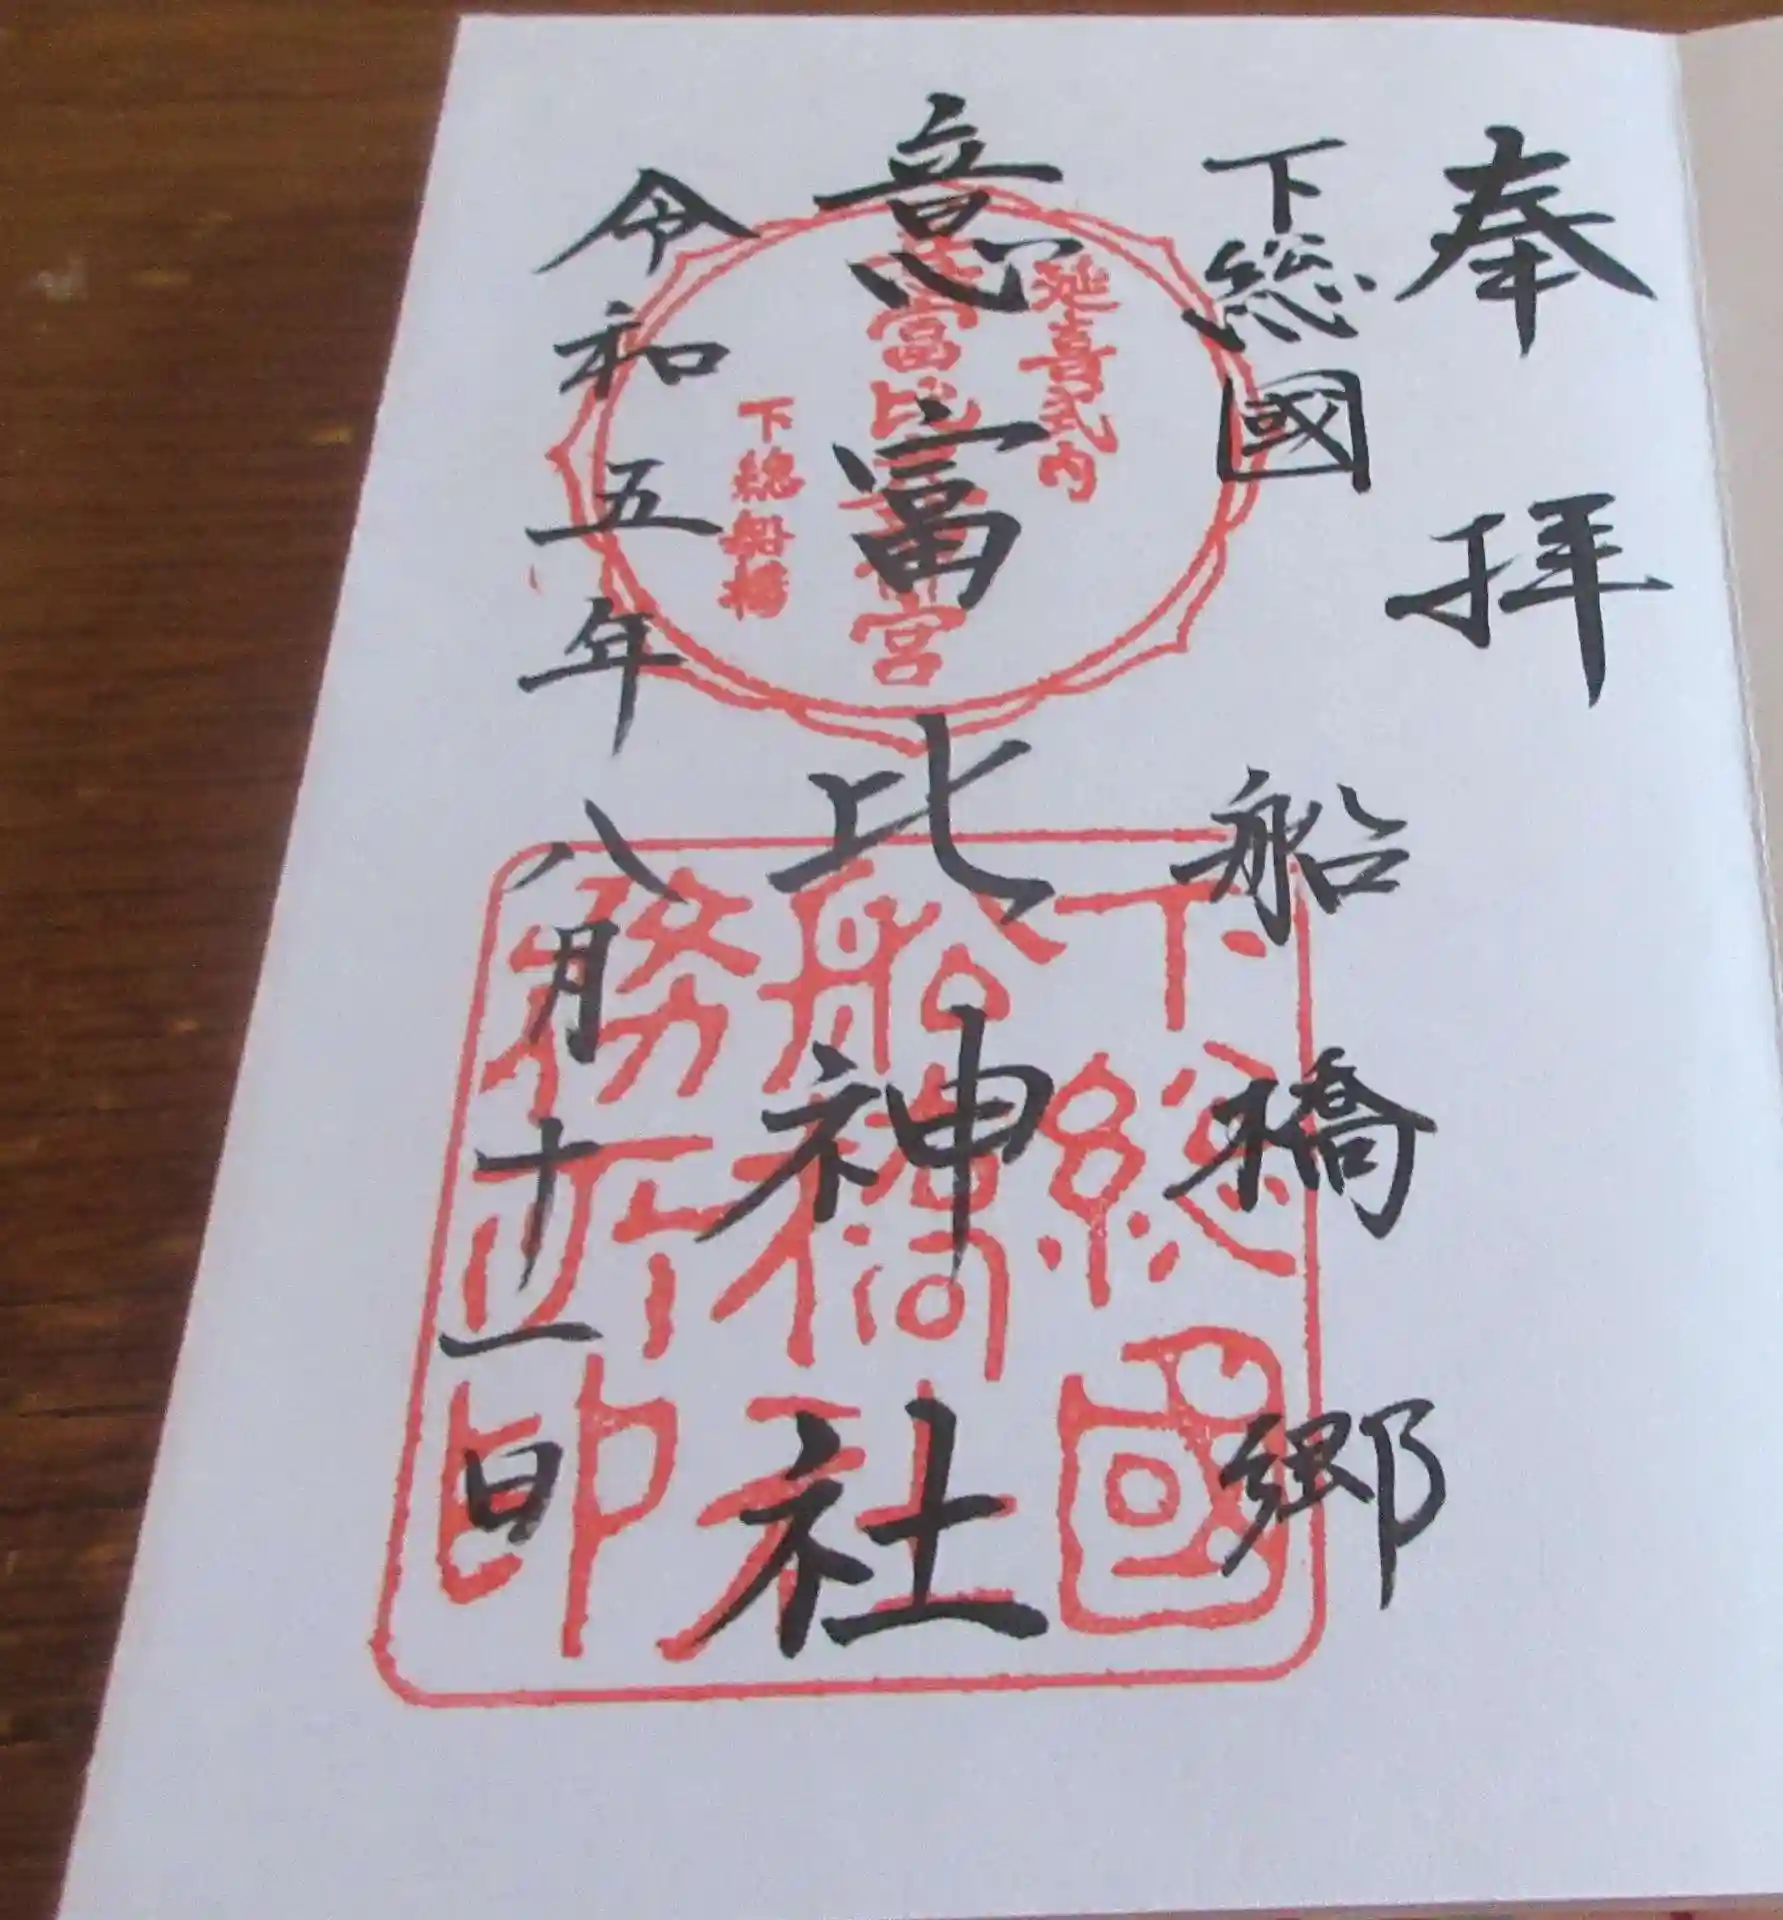 奉拝
下総國船橋郷
意富比神社
令和五年八月十一日
延喜式内
意富比神宮
下総船橋
下総國
船橋大社
務所印